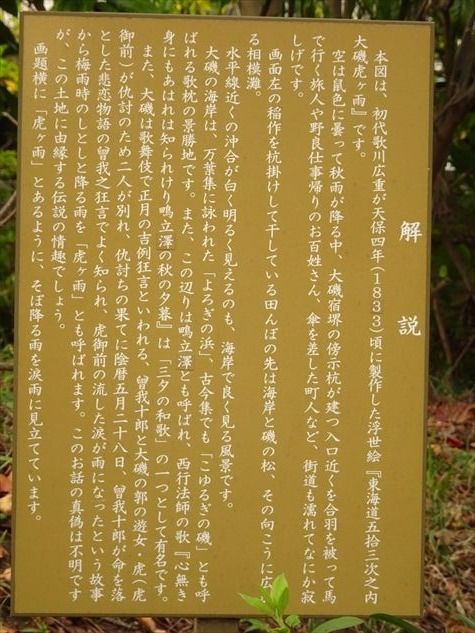 解説
本図は、初代歌川広重が天保四年(1833)頃に製作した浮世絵『東海道五拾三次之内
大磯虎ヶ雨』です。
空は鼠色に曇って秋雨が降る中、大磯宿堺の傍示杭が建つ入口近くを合羽を被って馬
で行く旅人や野良仕事帰りのお百姓さん、傘を差した町人など、街道も濡れてなにか寂
しげです。
画面左の稲作を杭掛けして干している田んぼの先は海岸と磯の松、その向こうに広
る相模灘。
水平線近くの沖合が白く明るく見えるのも、海岸で良く見る風景です。
大磯の海岸は、万葉集に詠われた「よろぎの浜」、古今集でも「こゆるぎの磯」とも呼
ばれる歌枕の景勝地です。また、この辺りは鴫立澤とも呼ばれ、西行法師の歌『心無き
身にもあはれは知られけり鴫立澤の秋の夕暮』は「三夕の和歌」の一つとして有名です。
また、大磯は歌舞伎で正月の吉例狂言といわれる、曽我十郎と大磯の郭の遊女・虎(虎
御前)が仇討のため二人が別れ、仇討ちの果てに陰暦五月二十八日、曽我十郎が命を落
とした悲恋物語の曽我之狂言でよく知られ、虎御前の流した涙が雨になったという故事
から梅雨時のしとしと降る雨を「虎ヶ雨」とも呼ばれます。このお話の真偽は不明です
が、この土地に由縁する伝説の情趣でしょう。
画題横に「虎ヶ雨」とあるように、そぼ降る雨を涙雨に見立てています。